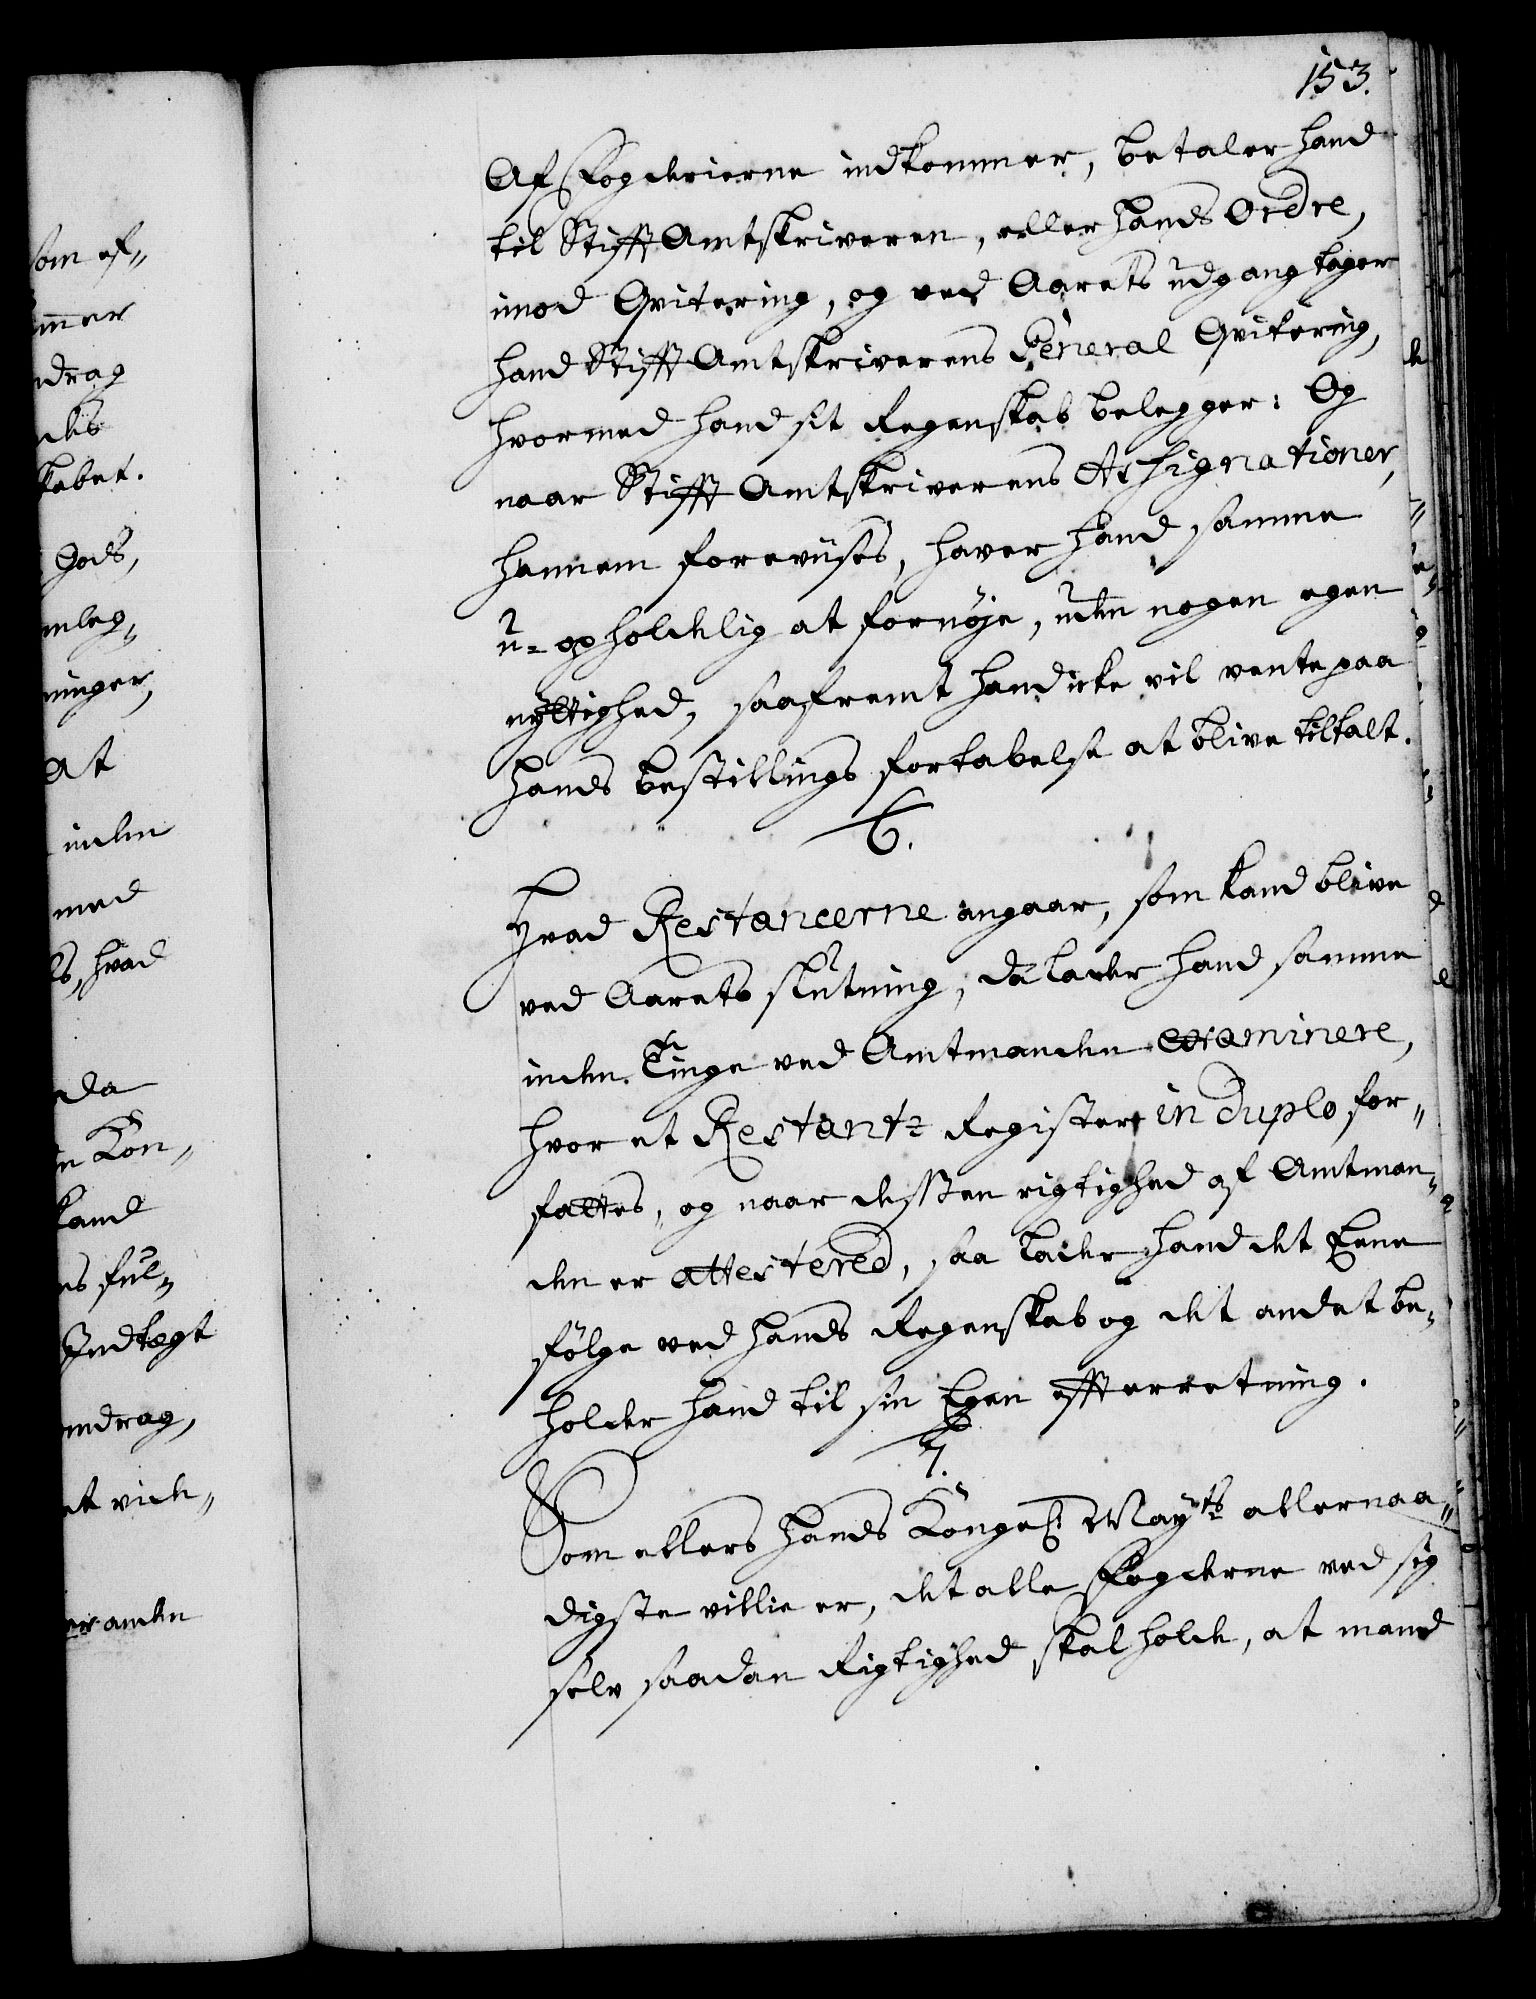 som ef„
mer
ndrag
des
kabet.
Gods,
mleg„
ninger,
at
inden
med
s, hvad
da
n Kon„
kand
es ful„
Indtegt
ndrag,
et vide„
er anden
153.
Af Fogderierne indkommer, betaler hand
til Stifft Amtskriveren, eller hands Ordre,
imod Qvitering, og ved Aarets udgang tager
hand Stifft Amtskriverens General Qvitering,
hvormed hand sit Regenskab belegger: Og
naar Stifft Amtskriverens Assignationer,
hannem foreviises, haver hand samme
u-opholdelig at fornøje, uden nogen egen
nyttighed, saafremt hand icke vil vente paa
hands bestillings fortabelse at blive tiltalt.
6.
Hvad Restancerne angaar, som kand blive
ved Aarets slutning, da lader hand samme
inden Tinge ved Amtmanden examinere,
hvor et Restantz Register in duplo for„
fattes, og naar dessen rigtighed af Amtman„
den er attestered, saa lader hand det Eene
følge ved hands Regenskab og det andet be„
holder hand til sin Egen effterretning.
7.
Som ellers hands Kongel: Mayts allernaa„
digste villie er, det alle Fogderne ved sig
selv saadan Rigtighed skal holde, at mand